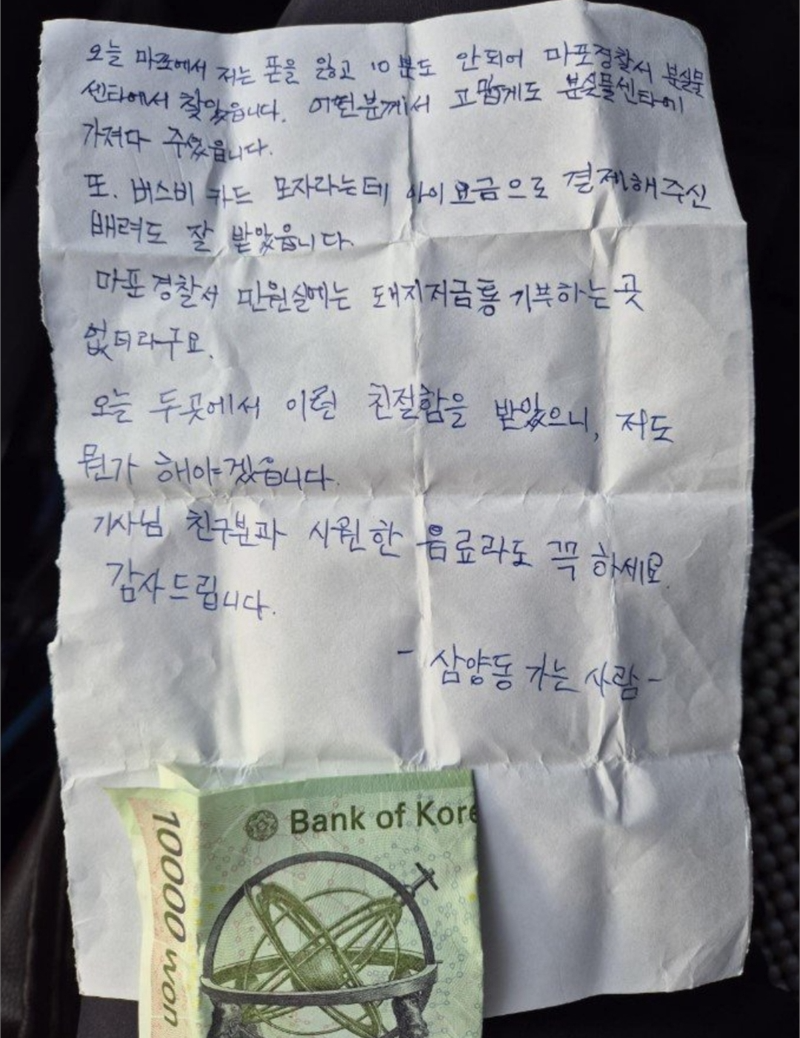 오늘 마포에서 저는 폰을 잃고 10분도 안되어 마포경찰서 분실물
센타에서 찾았읍니다. 어떤분께서 고맙게도 분실물센타에
가져다 주셨읍니다.
또. 버스비 카드 모자라는데 아이요금으로 결제해주신
배려도 잘 받았읍니다.
마포경찰서 민원실에는 돼지저금통 기부하는 곳
없더라구요.
오늘 두곳에서 이런 친절함을 받았으니, 저도
뭔가 해야겠읍니다.
기사님 친구분과 시원한 음료라도 꼭 하세요.
감사드립니다.
- 삼양동 가는 사람 -
Bank of Kore
10000 won